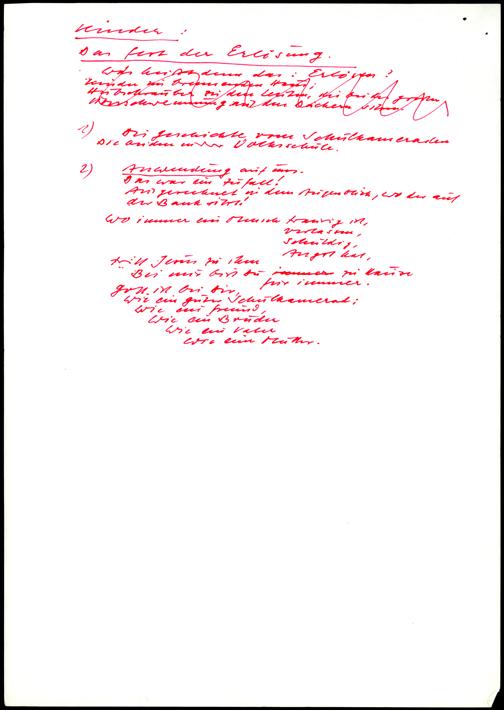 Kinder:
Das Fest der Erlösung.
Was heisst denn das: Erlösen?
Kinder im brennenden Haus;
Hubschrauber zu den Leuten, die bei der großen
Überschwemmung auf den Dächern
1) Die Geschichte vom Schulkameraden
Die anderen in der Volksschule.
2) Anwendung auf uns.
Das war ein Zufall!
Ausgerechnet in dem Augenblick, wo der auf
der Bank sitzt!
Wo immer ein Mensch traurig ist,
verlassen,
schuldig,
Angst hat,
tritt Jesus zu ihm
"Bei mir bist du immer zu Hause
für immer.
Gott ist bei Dir,
Wie ein guter Schulkamerad;
Wie ein Freund,
Wie ein Bruder
Wie ein Vater
Wie eine Mutter.